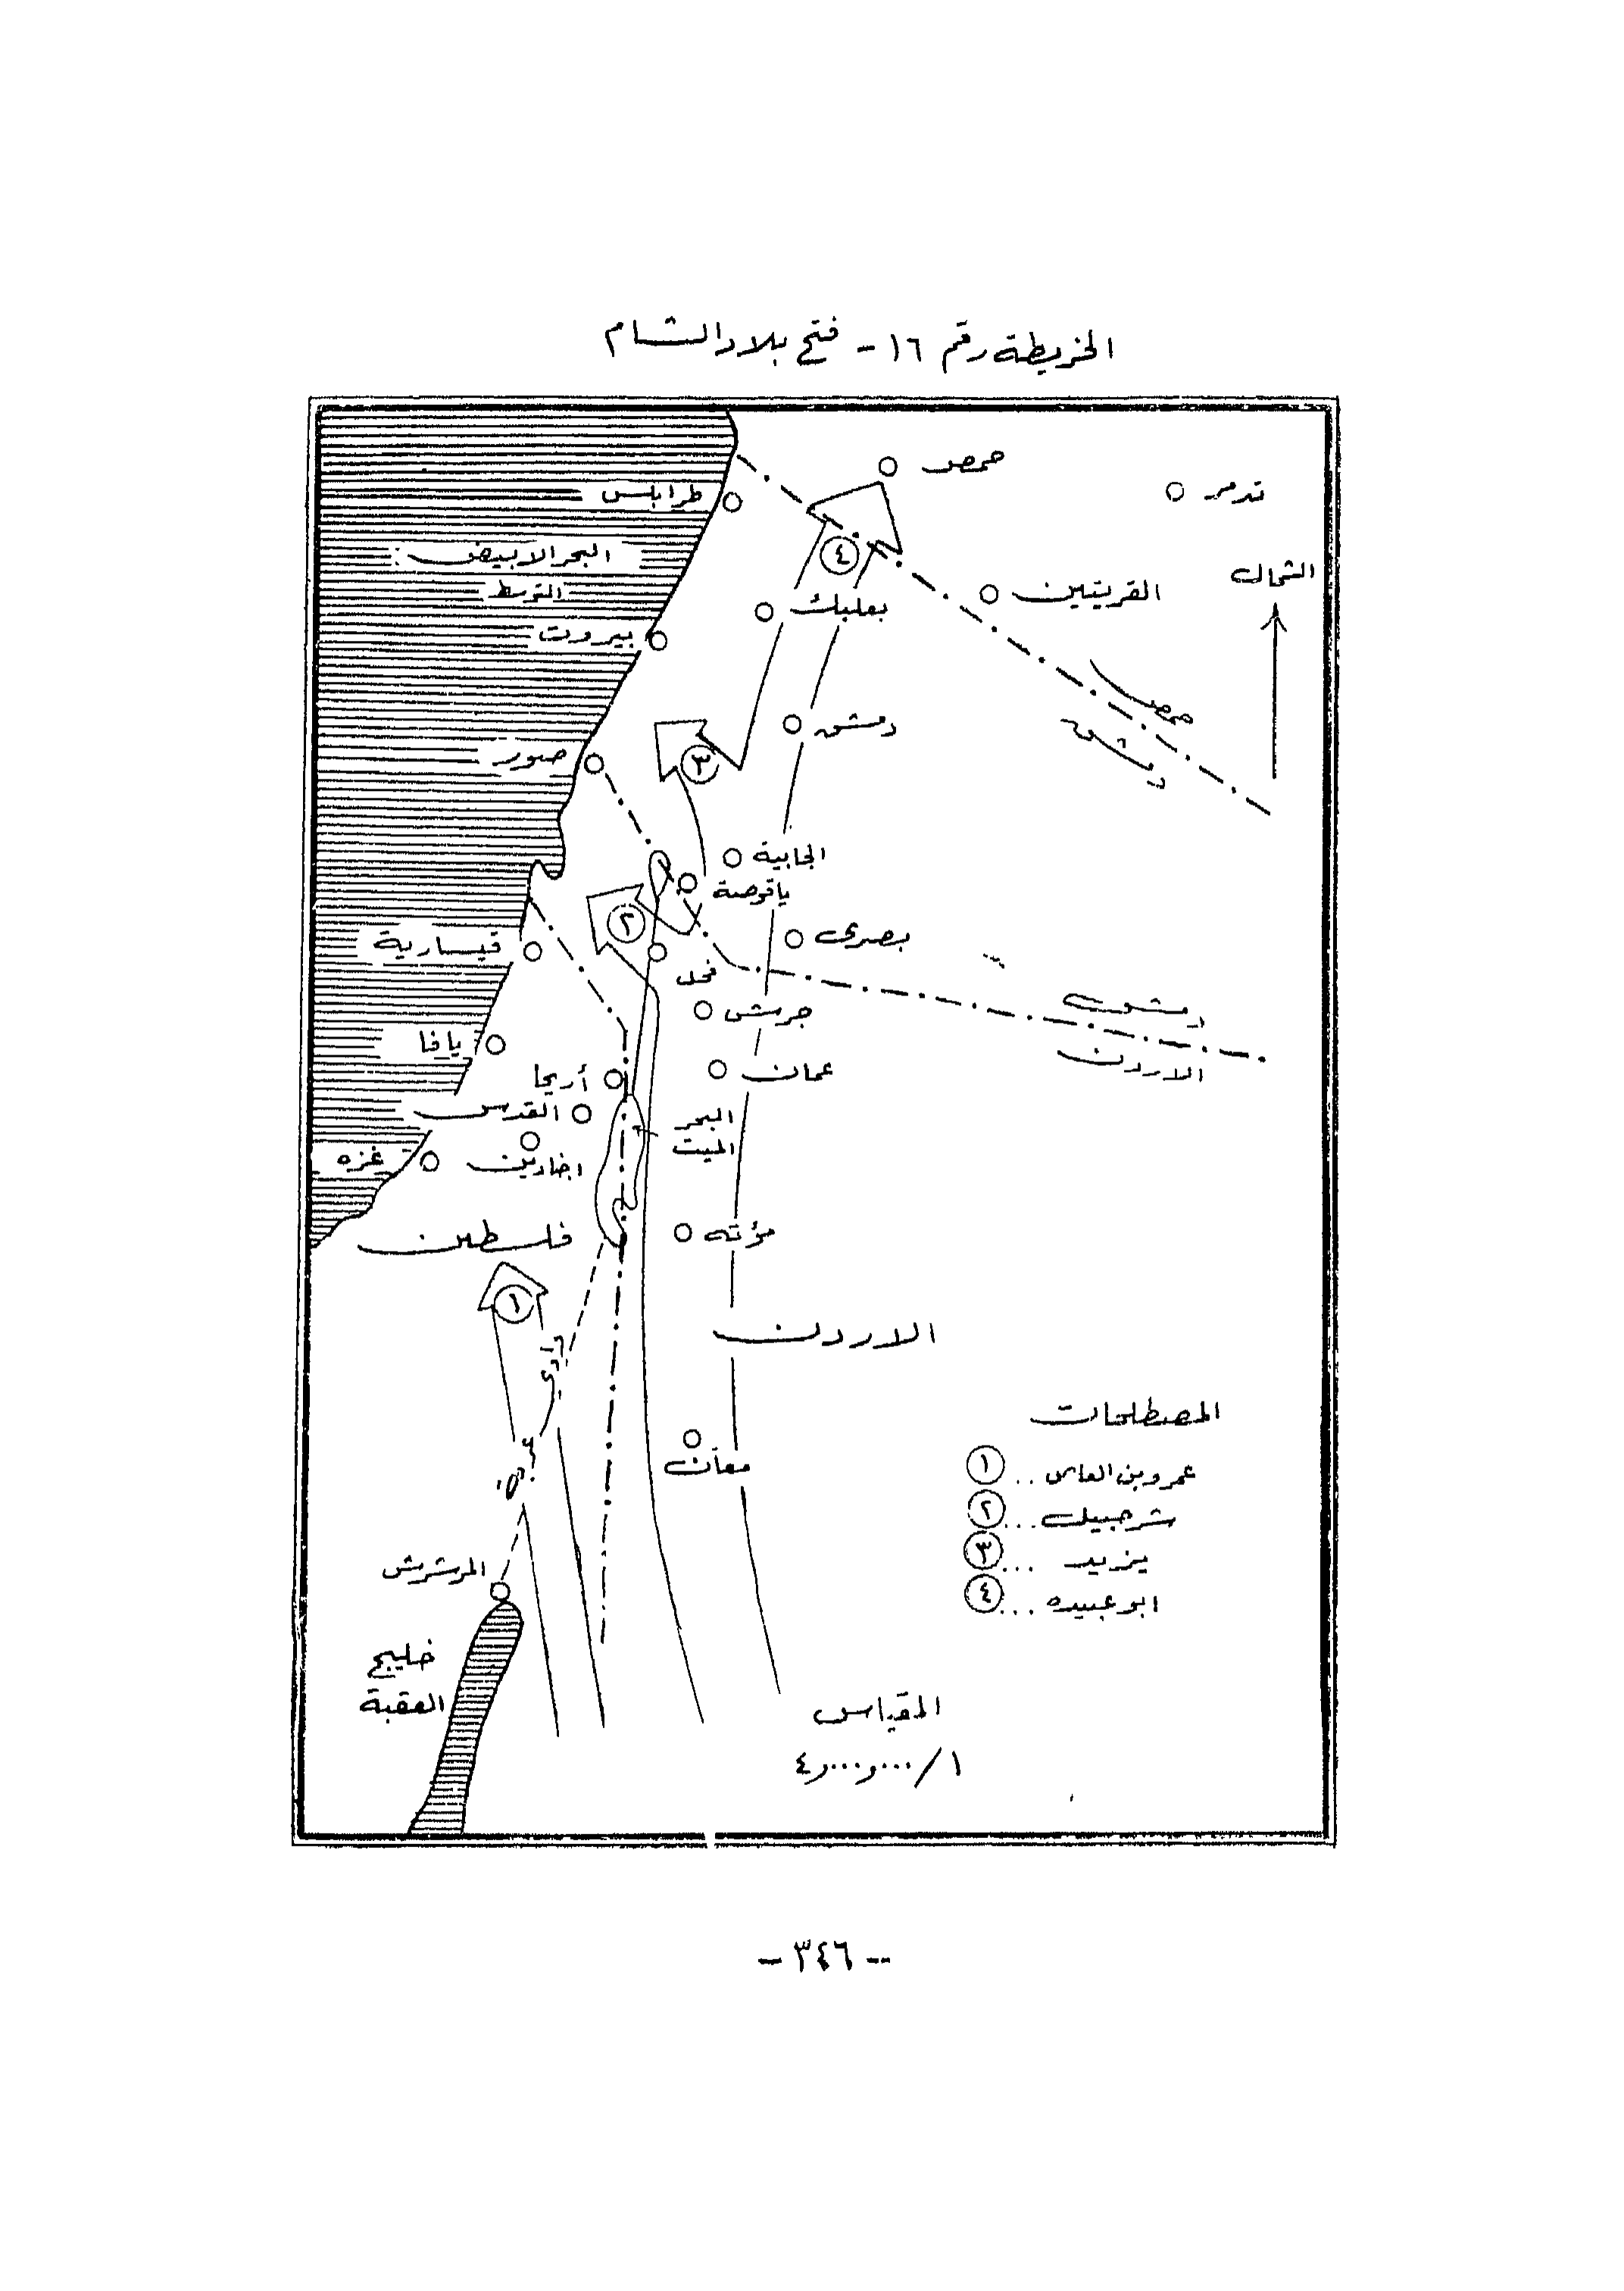 الخريطة رقم ١٦ - فتح بلاد الشام
حمص
تدمر
طرابلس
البحر الابيض
المتوسط
الشمال
القريتين
بعلبك
بيروت
حمص
دمشق
دمشق
صور
الجابية
ياقوصة
بصرى
قيسارية
فحل
جرش
دمشق
الاردن
يافا
عمان
أريحا
القدس
البحر
الميت
اجنادين
غزه
مؤته
فلسطين
١
٢
٣
٤
الاردن
وادي عربة
معان
المصطلحات
١ .. عمرو بن العاص
٢ ... شرحبيل
٣ ... يزيد
٤ ... ابو عبيده
المرشرش
خليج
العقبة
المقياس
١/٤٫٠٠٠٫٠٠٠
- ٣٤٦ -